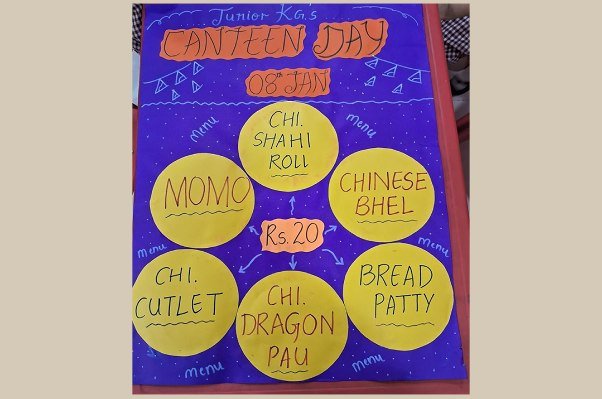 Junior KG's
CANTEEN DAY
08th JAN
Menu
Menu
CHI.
SHAHI
ROLL
MOMO
CHINESE
BHEL
Rs. 20
Menu
Menu
CHI.
CUTLET
CHI.
DRAGON
PAU
BREAD
PATTY
Menu
Menu